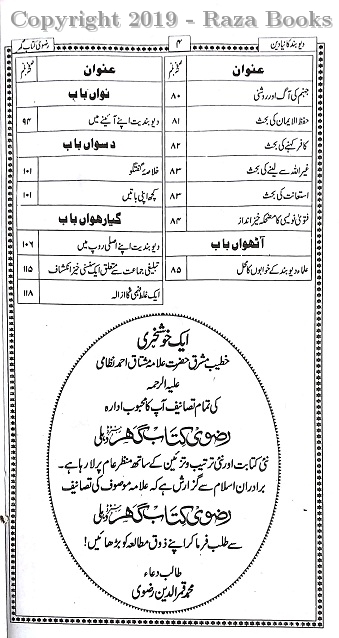 Copyright 2019 - Raza Books
دیوبند کا نیا دین
۴
رضوی کتاب گھر
عنوان
جہنم کی آگ اور روشنی ۸۰
حفظ الایمان کی بحث ۸۱
کافر کہنے کی بحث ۸۲
غیر اللہ سے لینے کی بحث ۸۳
استعانت کی بحث ۸۳
فتویٰ نویسی کا مضحکہ خیز انداز ۸۴
آٹھواں باب
علماء دیوبند کے خوابوں کا محل ۸۵
عنوان
نواں باب
دیوبندیت اپنے آئینے میں ۹۴
دسواں باب
خلاصۂ گفتگو ۱۰۱
کچھ اپنی باتیں ۱۰۱
گیارھواں باب
دیوبندیت اپنے اصلی روپ میں ۱۰۶
تبلیغی جماعت سے متعلق ایک سنسنی خیز انکشاف ۱۱۵
ایک غلط فہمی کا ازالہ ۱۱۸
ایک خوشخبری
خطیب مشرق حضرت علامہ مشتاق احمد نظامی
علیہ الرحمہ
کی تمام تصانیف آپ کا محبوب ادارہ
رضوی کتاب گھر دہلی
نئی کتابت اور نئی ترتیب و تزئین کے ساتھ منظر عام پر لا رہا ہے۔
برادران اسلام سے گزارش ہے کہ علامہ موصوف کی تصانیف
رضوی کتاب گھر دہلی
سے طلب فرما کر اپنے ذوق مطالعہ کو بڑھائیں!
طالب دعاء
محمد قمر الدین رضوی